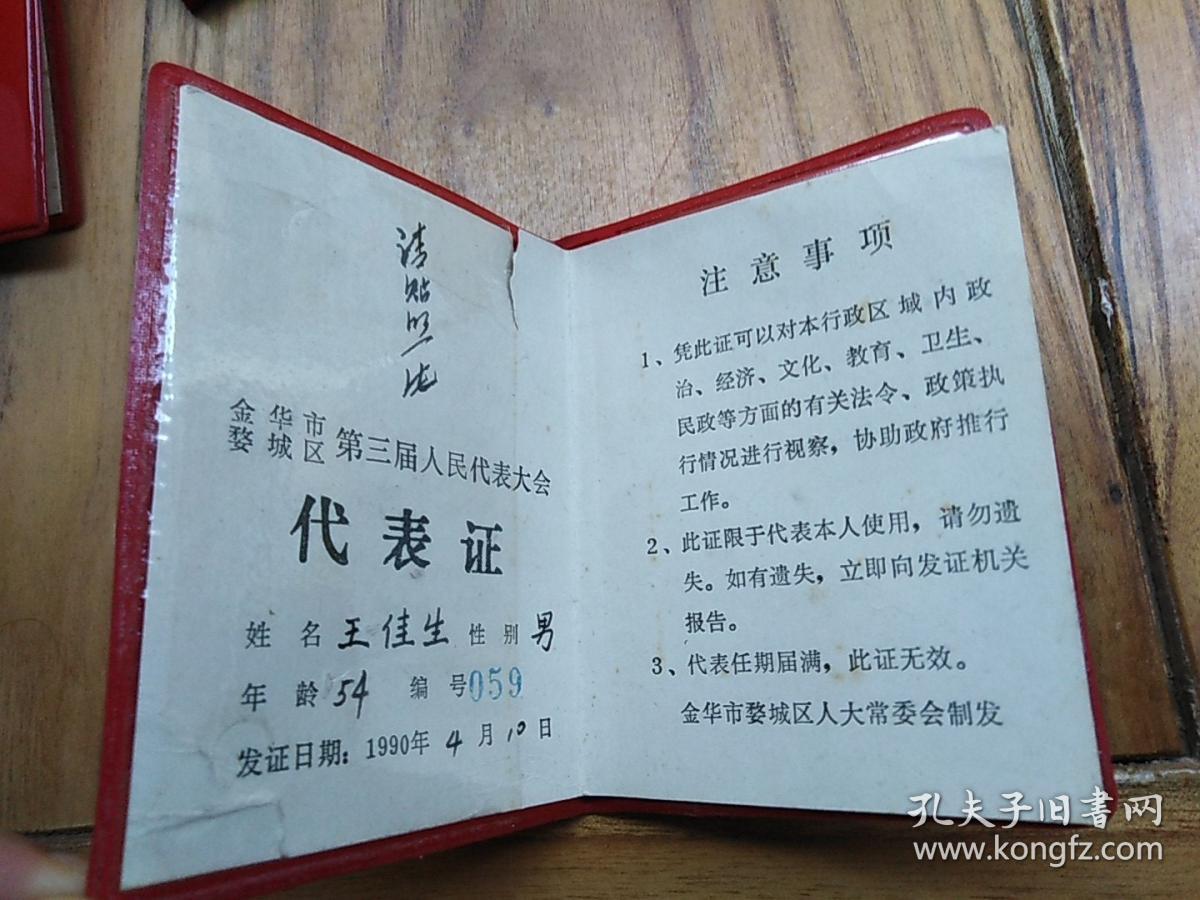 请贴照片
金华市
婺城区 第三届人民代表大会
代表证
姓 名 王佳生 性 别 男
年 龄 54 编 号 059
发证日期：1990年 4 月 10 日
注意事项
1、凭此证可以对本行政区域内政
治、经济、文化、教育、卫生、
民政等方面的有关法令、政策执
行情况进行视察，协助政府推行
工作。
2、此证限于代表本人使用，请勿遗
失。如有遗失，立即向发证机关
报告。
3、代表任期届满，此证无效。
金华市婺城区人大常委会制发
孔夫子旧书网
www.kongfz.com